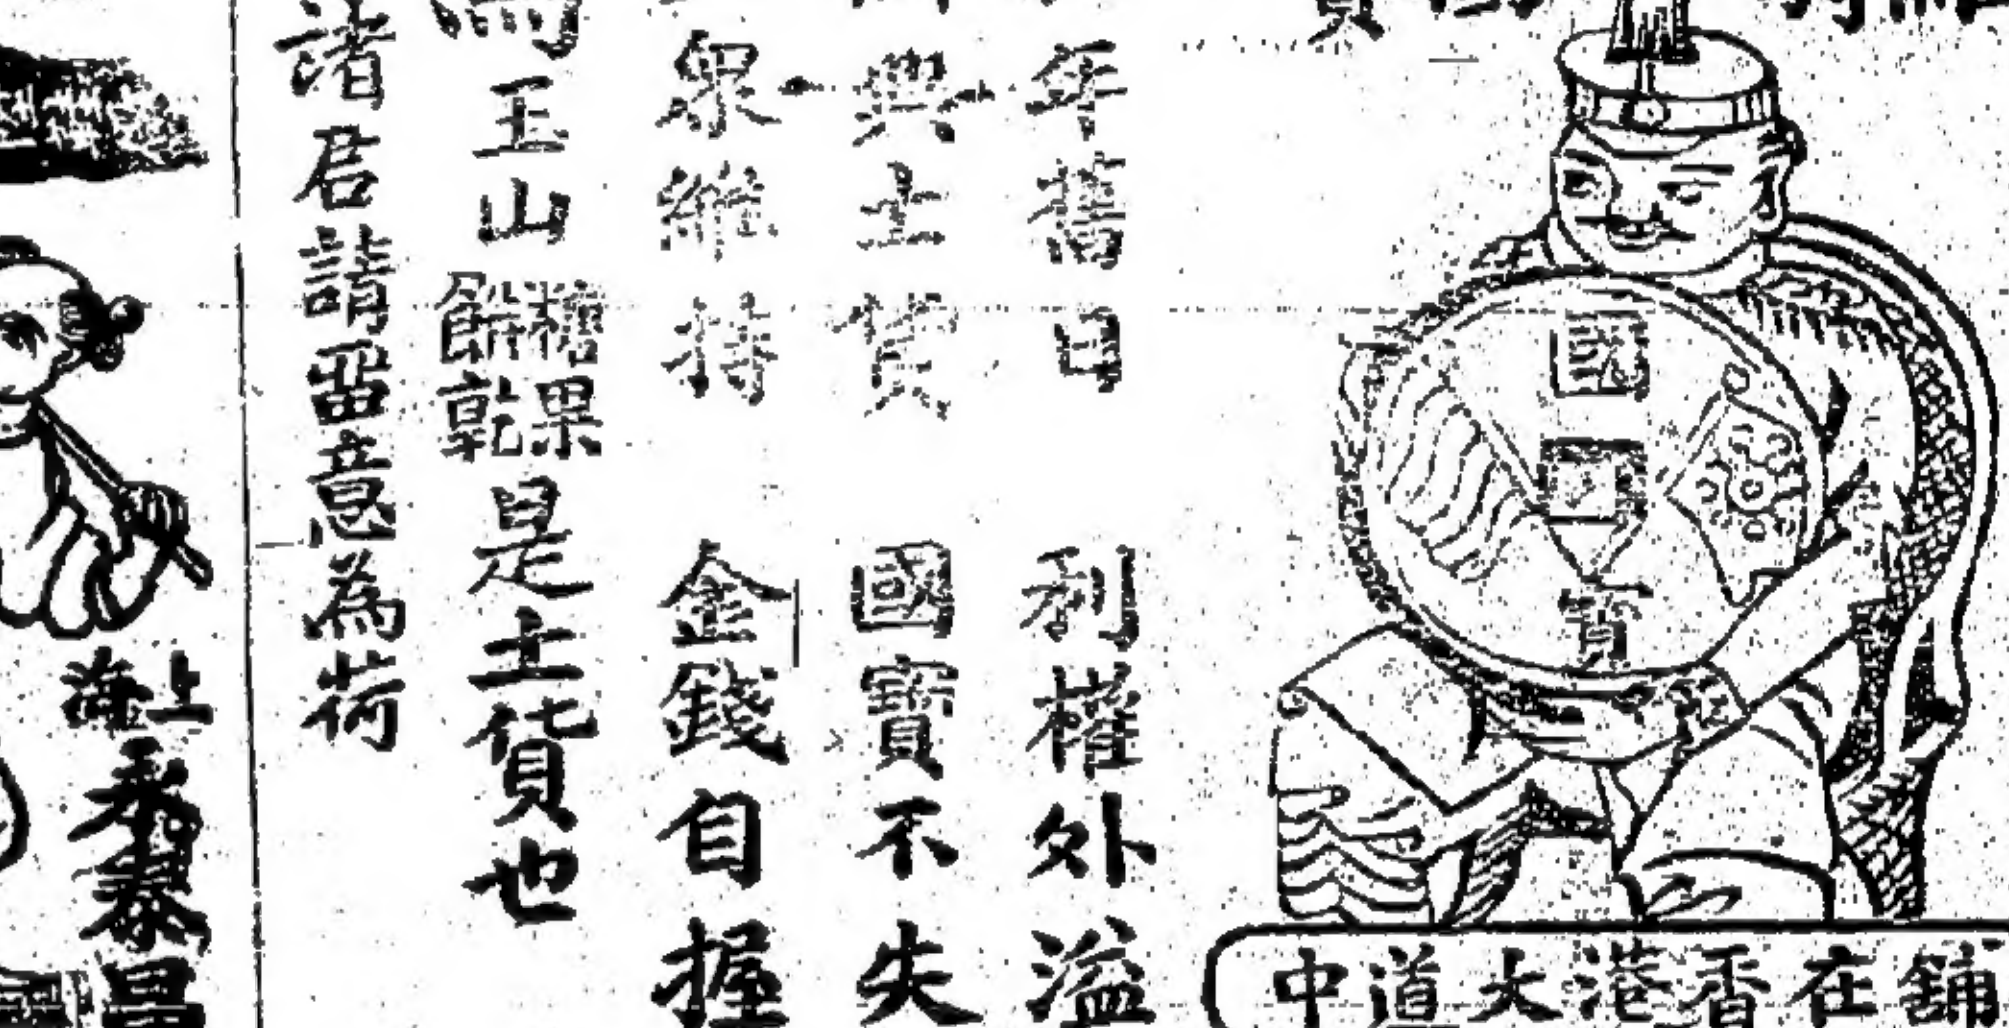 國
寶
舖在香港大道中
年舊日 利權外溢
興土貨 國寶不失
眾維持 金錢自握
馬玉山糖果餅乾是土貨也
諸君請留意為荷
上海
永泰